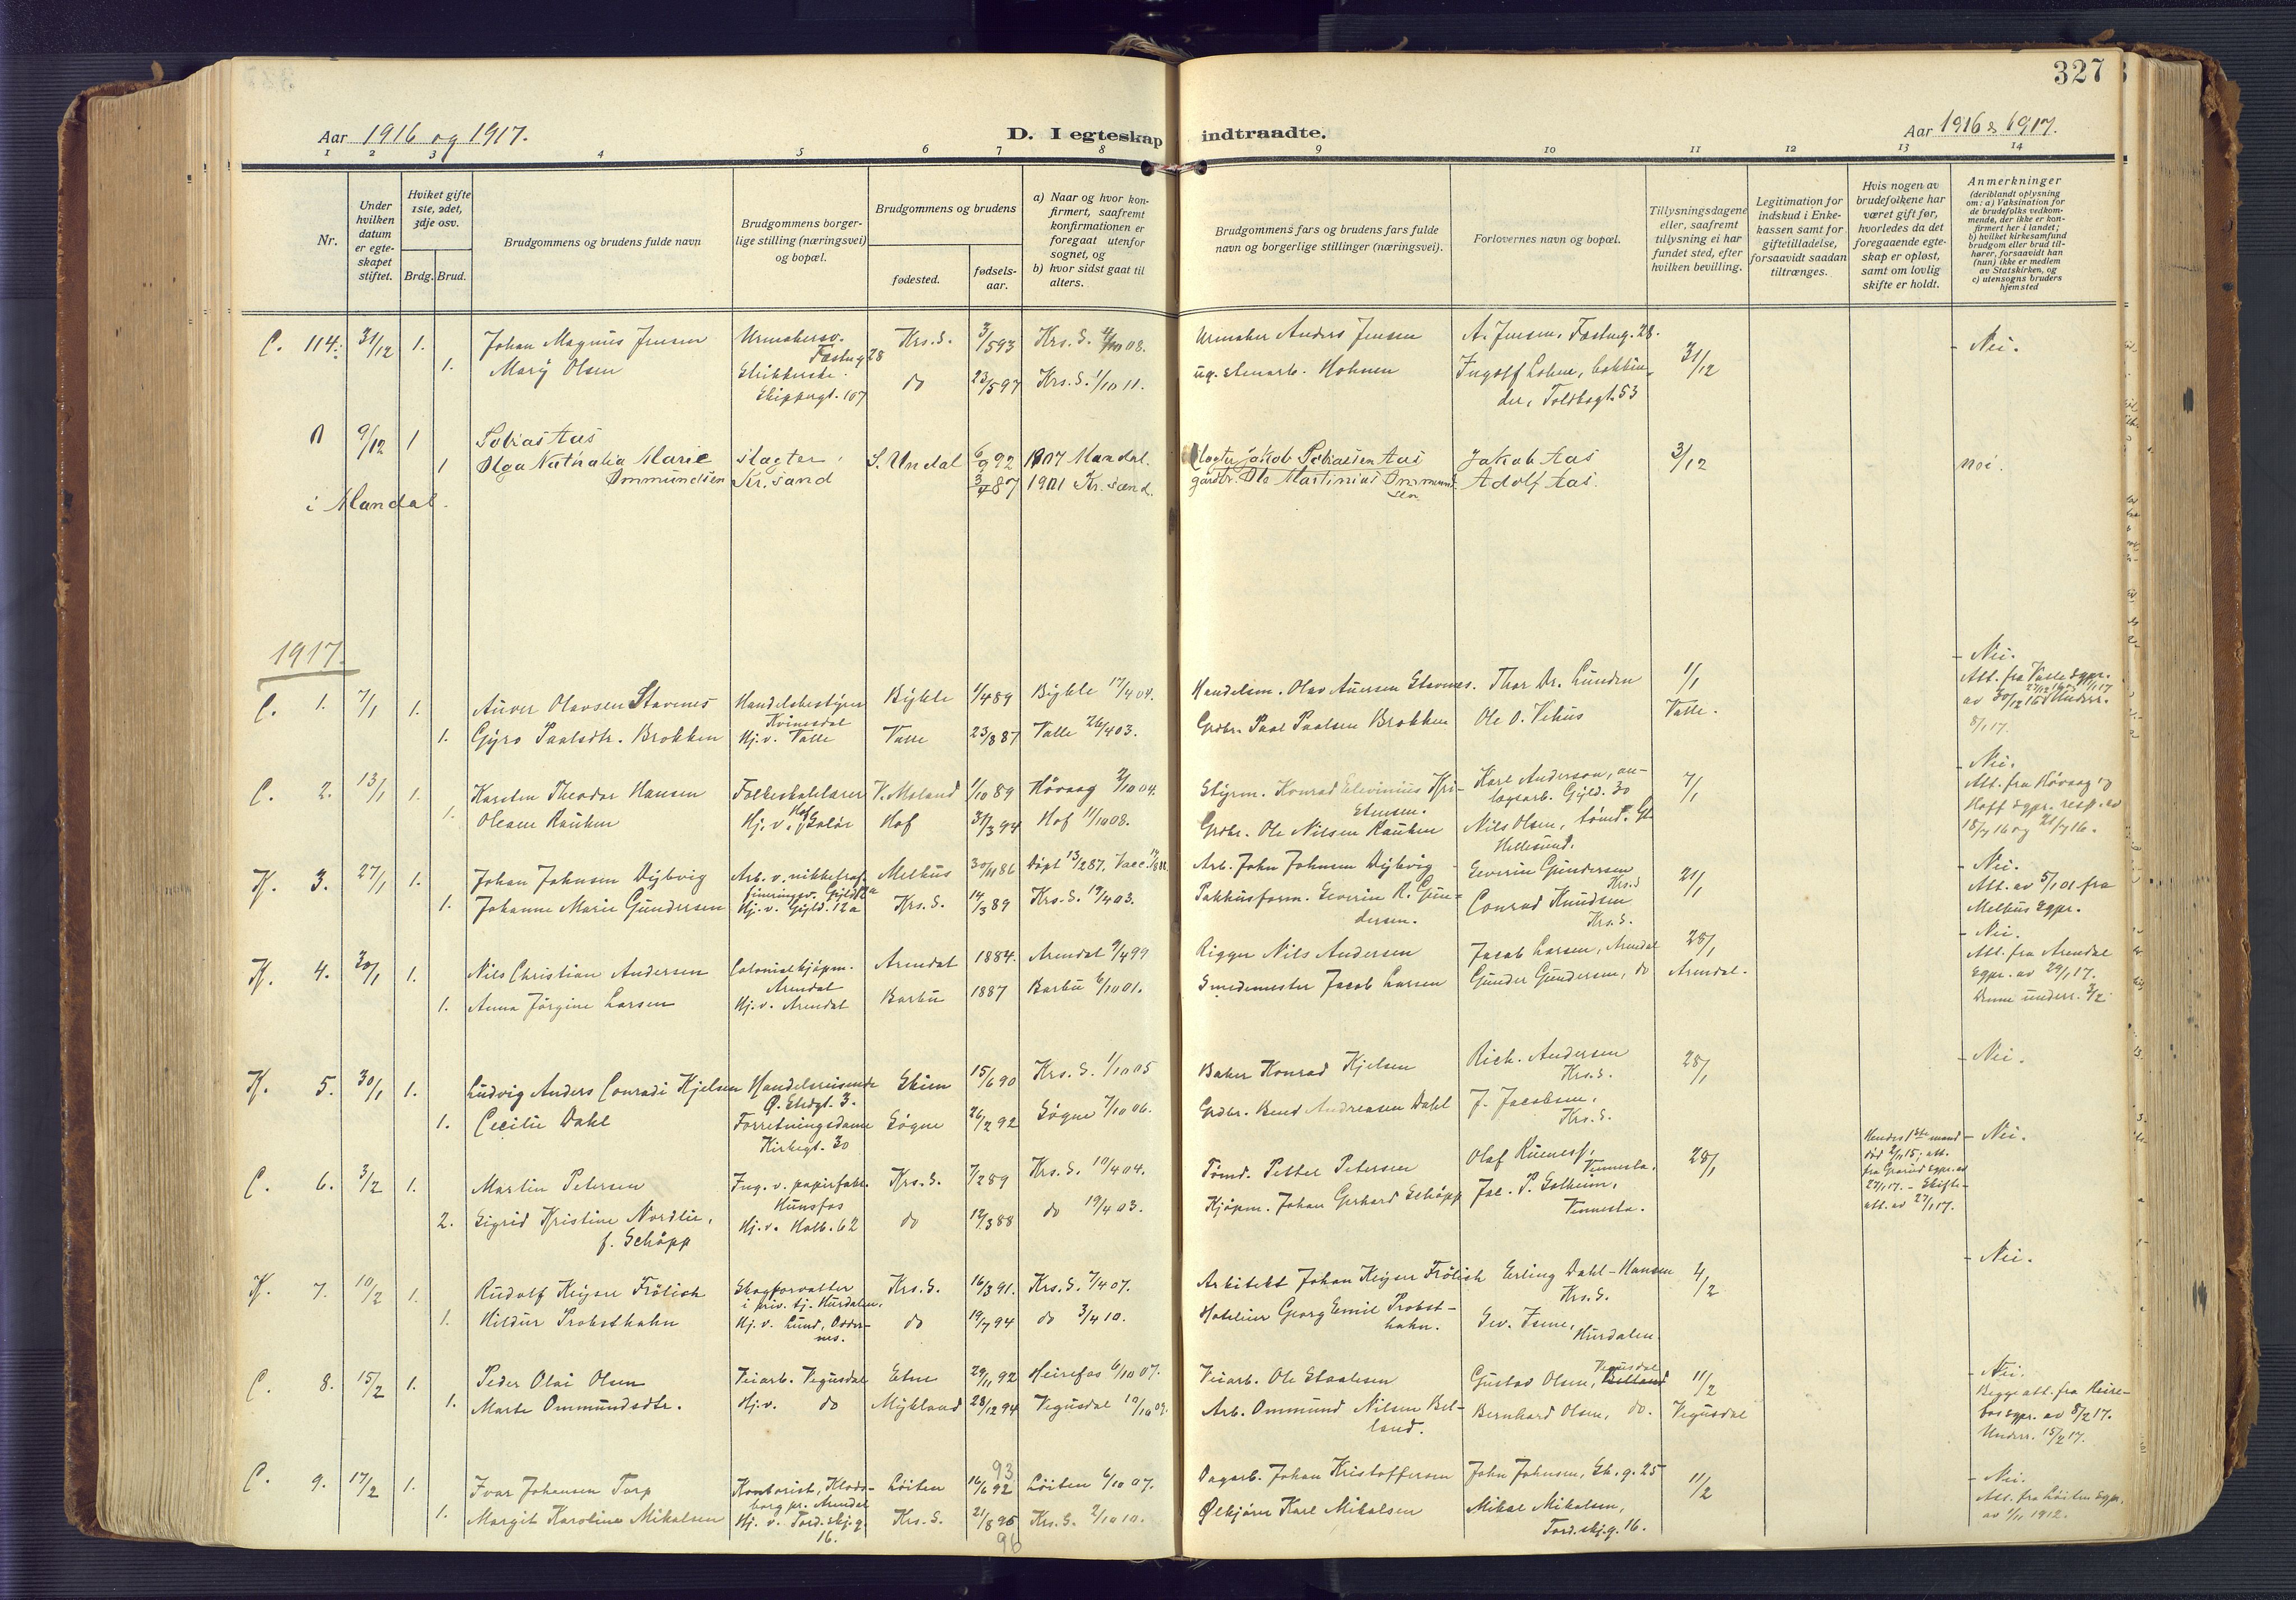 327
Aar 1916 og 1917.
D. I egteskap indtraadte.
Aar 1916 & 1917.
1 2 3 4 5 6 7 8 9 10 11 12 13 14
Nr.
Under hvilken datum er egteskapet stiftet.
Hviket gifte 1ste, 2det, 3dje osv.
Brdg. Brud.
Brudgommens og brudens fulde navn
Brudgommens borgerlige stilling (næringsvei) og bopæl.
Brudgommens og brudens
fødested.
fødselsaar.
a) Naar og hvor konfirmert, saafremt konfirmationen er foregaat utenfor sognet, og
b) hvor sidst gaat til alters.
Brudgommens fars og brudens fars fulde navn og borgerlige stillinger (næringsvei).
Forlovernes navn og bopæl.
Tillysningsdagene eller, saafremt tillysning ei har fundet sted, efter hvilken bevilling.
Legitimation for indskud i Enkekassen samt for giftetilladelse, forsaavidt saadan tiltrænges.
Hvis nogen av brudefolkene har været gift før, hvorledes da det foregaaende egteskap er opløst, samt om lovlig skifte er holdt.
Anmerkninger
(deriblandt oplysning om: a) Vaksination for de brudefolks vedkommende, der ikke er konfirmert her i landet; b) hvilket kirkesamfund brudgom eller brud tilhører, forsaavidt han (hun) ikke er medlem av Statskirken, og c) utensogns bruders hjemsted
C. 114. 31/12 1. Johan Magnus Jensen Urmakersv. Fæstng. 28 Krs.S. 3/5 93 Krs.S. 08. Urmaker Anders Jensen A. Jensen, Fæstng. 28. 31/12 - Nei.
1. Mary Olsen Skippergt. 107 do 23/5 97 Krs.S. 1/10 11. ug. stenarb. Hohnen Ingolf Lohne, bokbinder, Toldbogt. 53
9/12 1 Tobias Aas slagter S. Undal 6/9 92 1907 Mandal. slagter Jakob Tobiassen Aas Jakob Aas 3/12 nei.
1 Olga Nathalia Marie Ommundsen Kr.sand 87 1901 Kr.sand. gårdbr. Ole Martinius Ommundsen Adolf Aas.
i Mandal.
1917.
C. 1. 7/1 1. Auver Olavsen Stavenes Handelsbestyrer Kvinesdal Bykle 1/4 89 Bykle 17/4 04. Handelsm. Olav Auersen Stavenes. Thor Dr. Lunden 1/1 Valle. - Nei. Att. fra Valle sgpr.
1. Gyro Paalsdtr. Brokken Hj.v. Valle Valle 23/8 87 Valle 26/4 03. Grdbr. Paal Paalsen Brokken Ole O. Vehus 8/1 17.
C. 2. 13/1 1. Karsten Theodor Hansen Folkeskolelærer V. Moland 1/10 89 Høvaag 2/10 04. Styrm. Konrad Kristensen. Karl Anderson, anlægsarb. Gyld. 30 7/1 - Nei. Att. fra Høvaag og Hoff sgpr. resp. av 18/7 16 og 21/7 16.
1. Oleane Rauken Hj.v. Hof, Solør Hof 31/3 94 Hof 11/10 08. Grdbr. Ole Nilsen Rauken Nils Olsen, tømd. Gl. Hellesund.
K. 3. 27/1 1. Johan Johnsen Dybvig Arb. v. nikkelraffineringsv. Gyld. 12a Melhus 30/11 86 Døpt 13/2 87, Vacc. Arb. John Johnsen Dybvig Severin Gundersen Krs.S 21/1 - Nei. Att. av 5/1 01 fra Melhus sgpr.
1. Johanne Marie Gundersen Hj.v. Gyld. 12a Krs.S. 14/3 89 Krs.S. 19/4 03. Pakhusform. Severin R. Gundersen. Conrad Knudsen Krs.S.
K. 4. 30/1 1. Nils Christian Andersen Colonialkjøpm. Arendal Arendal 1884. Arendal 9/4 99 Rigger Nils Andersen Jacob Larsen, Arendal 28/1 Arendal. - Nei. Att. fra Arendal sgpr. av 29/1 17. Denne underr. 3/2
1. Anna Jørgine Larsen Hj.v. Arendal Barbu 1887 Barbu 6/10 01. Smedemester Jacob Larsen Gunder Gundersen, do
K. 5. 30/1 1. Ludvig Anders Conradi Kjelsen Handelsreisende Ø. Strdgt. 3. Skien 15/6 90 Krs.S. 1/10 05 Baker Konrad Kjelsen Rich. Andersen Krs.S. 28/1 - Nei.
1. Cecilie Dahl Forretningsdame Kirkegt. 30 Søgne 26/2 92 Søgne 7/10 06. Grdbr. Bend Andreasen Dahl J. Jacobsen, Krs.S.
C. 6. 3/2 1. Martin Petersen Ing. v. papirfabr. Hunsfos Krs.S. 7/2 89 Krs.S. 10/4 04. Tømd. Petter Petersen Olaf Vennesla. 28/1 Hendes 1ste mand død 2/1 15; att. fra Grorud sgpr. av 27/1 17. - Skifteatt. av 27/1 17. - Nei.
2. Sigrid Kristine Nordlie, f. Schøpp Hj.v. Holb. 62 do 12/3 88 do 19/4 03. Kjøpm. Johan Gerhard Schøpp Jac. P. Solheim, Vennesla.
K. 7. 10/2 1. Rudolf Keyser Frölich Skogforvalter i priv. tj. Hurdalen. Krs.S. 16/3 91. Krs.S. 7/4 07. Arkitekt Johan Keyser Frölich Erling Dahl-Hansen Krs.S. 4/2 - Nei.
1. Hildur Probsthahn Hj.v. Lund, Oddernes. do 19/7 94 do 3/4 10. Hoteleier Georg Emil Probsthahn. Hurdalen.
C. 8. 15/2 1. Peder Olai Olsen Veiarb. Vegusdal Etne 29/11 92 Heirefos 6/10 07. Veiarb. Ole Staalesen Gustav Olsen, Vegusdal 11/2 Vegusdal - Nei. Begge att. fra Heirefos sgpr. av 8/2 17. Underr. 15/2 17.
1. Marte Ommundsdtr. Hj.v. do Mykland 28/12 94 Vegusdal 10/10 09. Arb. Ommund Nilsen Belland. Bernhard Olsen, do.
C. 9. 17/2 1. Ivar Johansen Torp Kontorist, Klodsborg pr. Arendal Løiten 16/6 92 93 Løiten 6/10 07. Dagarb. Johan Kristoffersen John Johnsen, St. g. 25 11/2 - Nei. Att. fra Løiten sgpr. av 1/11 1912.
1. Margit Karoline Mikalsen Hj. v. Tord.skj.g. 16. Krs.S. 21/8 96 Krs.S. 2/10 10. Ølkjører Karl Mikalsen Mikal Mikalsen, Tord.skj.g. 16.